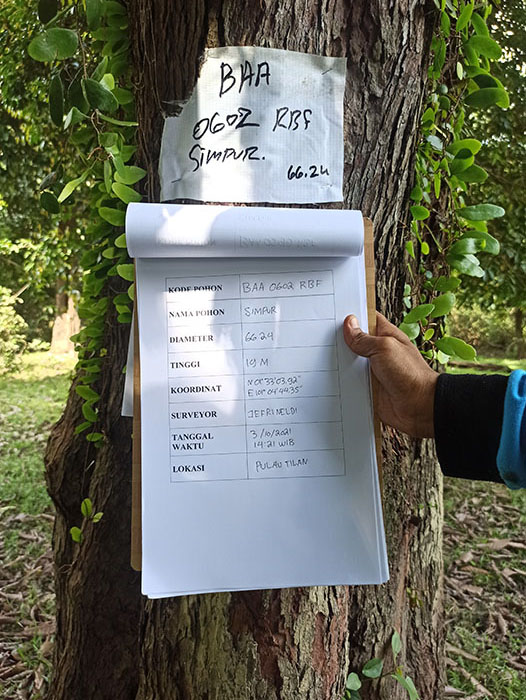 BAA
0602 RBF
SIMPUR.
66.24
KODE POHON BAA 0602 RBF
NAMA POHON SIMPUR
DIAMETER 66.24
TINGGI 19 M
KOORDINAT N 01° 33' 03.92"
E 101° 04' 44.35"
SURVEYOR JEFRINELDI
TANGGAL 3/10/2021
WAKTU 14:21 WIB
LOKASI PULAU TILAN